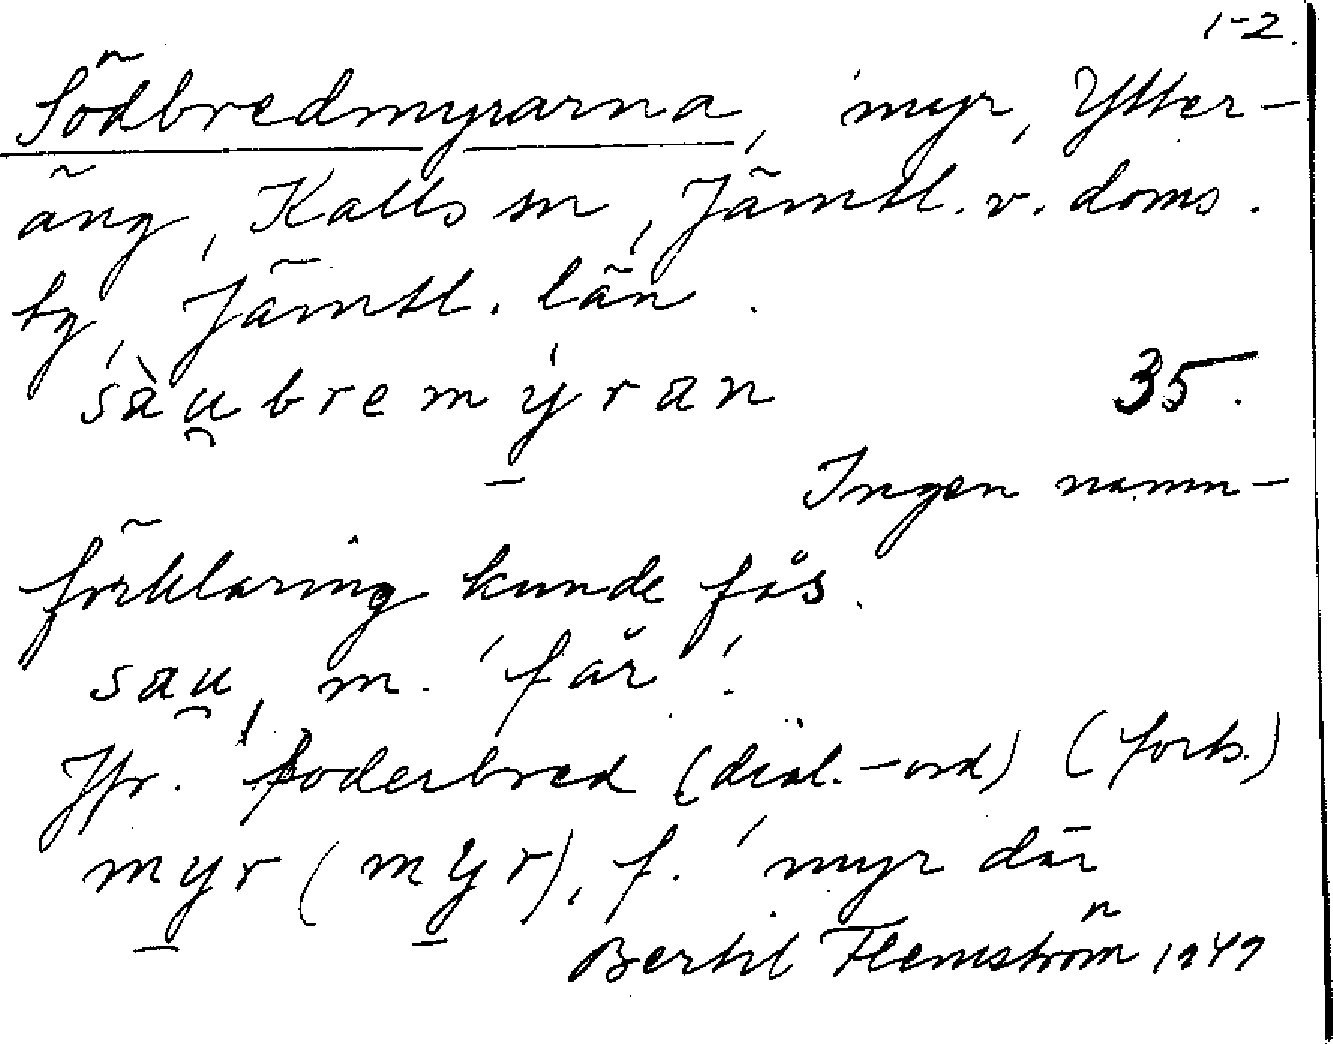 1-2.
Södbredmyrarna, myr, Ytter-
äng, Kalls sn, Jämtl. v. doms.
by, Jämtl. län.
sàu̯bremýran 35.
Ingen namn-
förklaring kunde fås.
sau̯, m. 'får'.
Jfr. foderbred (dial.-ord) (forts.)
myr (myr), f. 'myr där
Bertil Flemström 1949